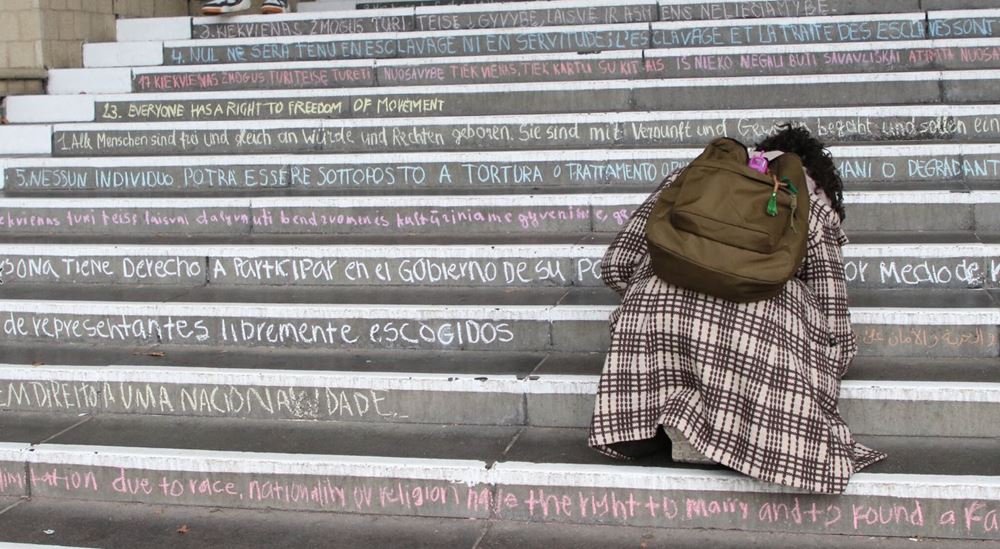 3. KIEKVIENAS ŽMOGUS TURI TEISĘ Į GYVYBĘ, LAISVĘ IR ASMENS NELIEČIAMYBĘ.
4. NUL NE SERA TENU EN ESCLAVAGE NI EN SERVITUDE; L'ESCLAVAGE ET LA TRAITE DES ESCLAVES SONT
17. KIEKVIENAS ŽMOGUS TURI TEISĘ TURĖTI NUOSAVYBĘ TIEK VIENAS, TIEK KARTU SU KITAIS IŠ NIEKO NEGALI BŪTI SAVAVALIŠKAI ATIMTA NUOSA
13. EVERYONE HAS A RIGHT TO FREEDOM OF MOVEMENT
1. Alle Menschen sind frei und gleich an Würde und Rechten geboren. Sie sind mit Vernunft und Gewissen begabt und sollen ein
5. NESSUN INDIVIDUO POTRÀ ESSERE SOTTOPOSTO A TORTURA O TRATTAMENTO O MANI O DEGRADANT
kvienas turi teisę laisvai dalyvauti bendruomenės kultūriniame gyvenime, gė
SONA TIENE DERECHO A PARTICIPAR EN EL GOBIERNO DE SU OR MEDIO de
de representantes libremente escogidos
والحرية والأمان على
EM DIREITO A UMA NACIONALIDADE
limitation due to race, nationality or religion have the right to marry and to found a fa